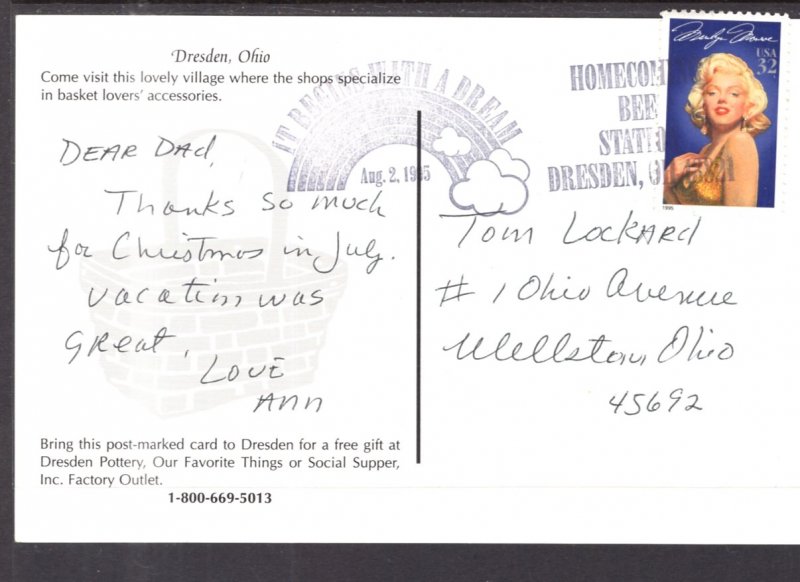 Dresden, Ohio
Come visit this lovely village where the shops specialize
in basket lovers' accessories.
DEAR DAD,
Thanks so much
for Christmas in July.
vacation was
great.
LOVE
Ann
Bring this post-marked card to Dresden for a free gift at
Dresden Pottery, Our Favorite Things or Social Supper,
Inc. Factory Outlet.
1-800-669-5013
IT BEGINS WITH A DREAM
Aug. 2, 1995
HOMECOMING
BEE
STATION
DRESDEN, OH 43821
Marilyn Monroe
USA
32
1995
Tom Lockard
# 1 Ohio Avenue
Wellston, Ohio
45692